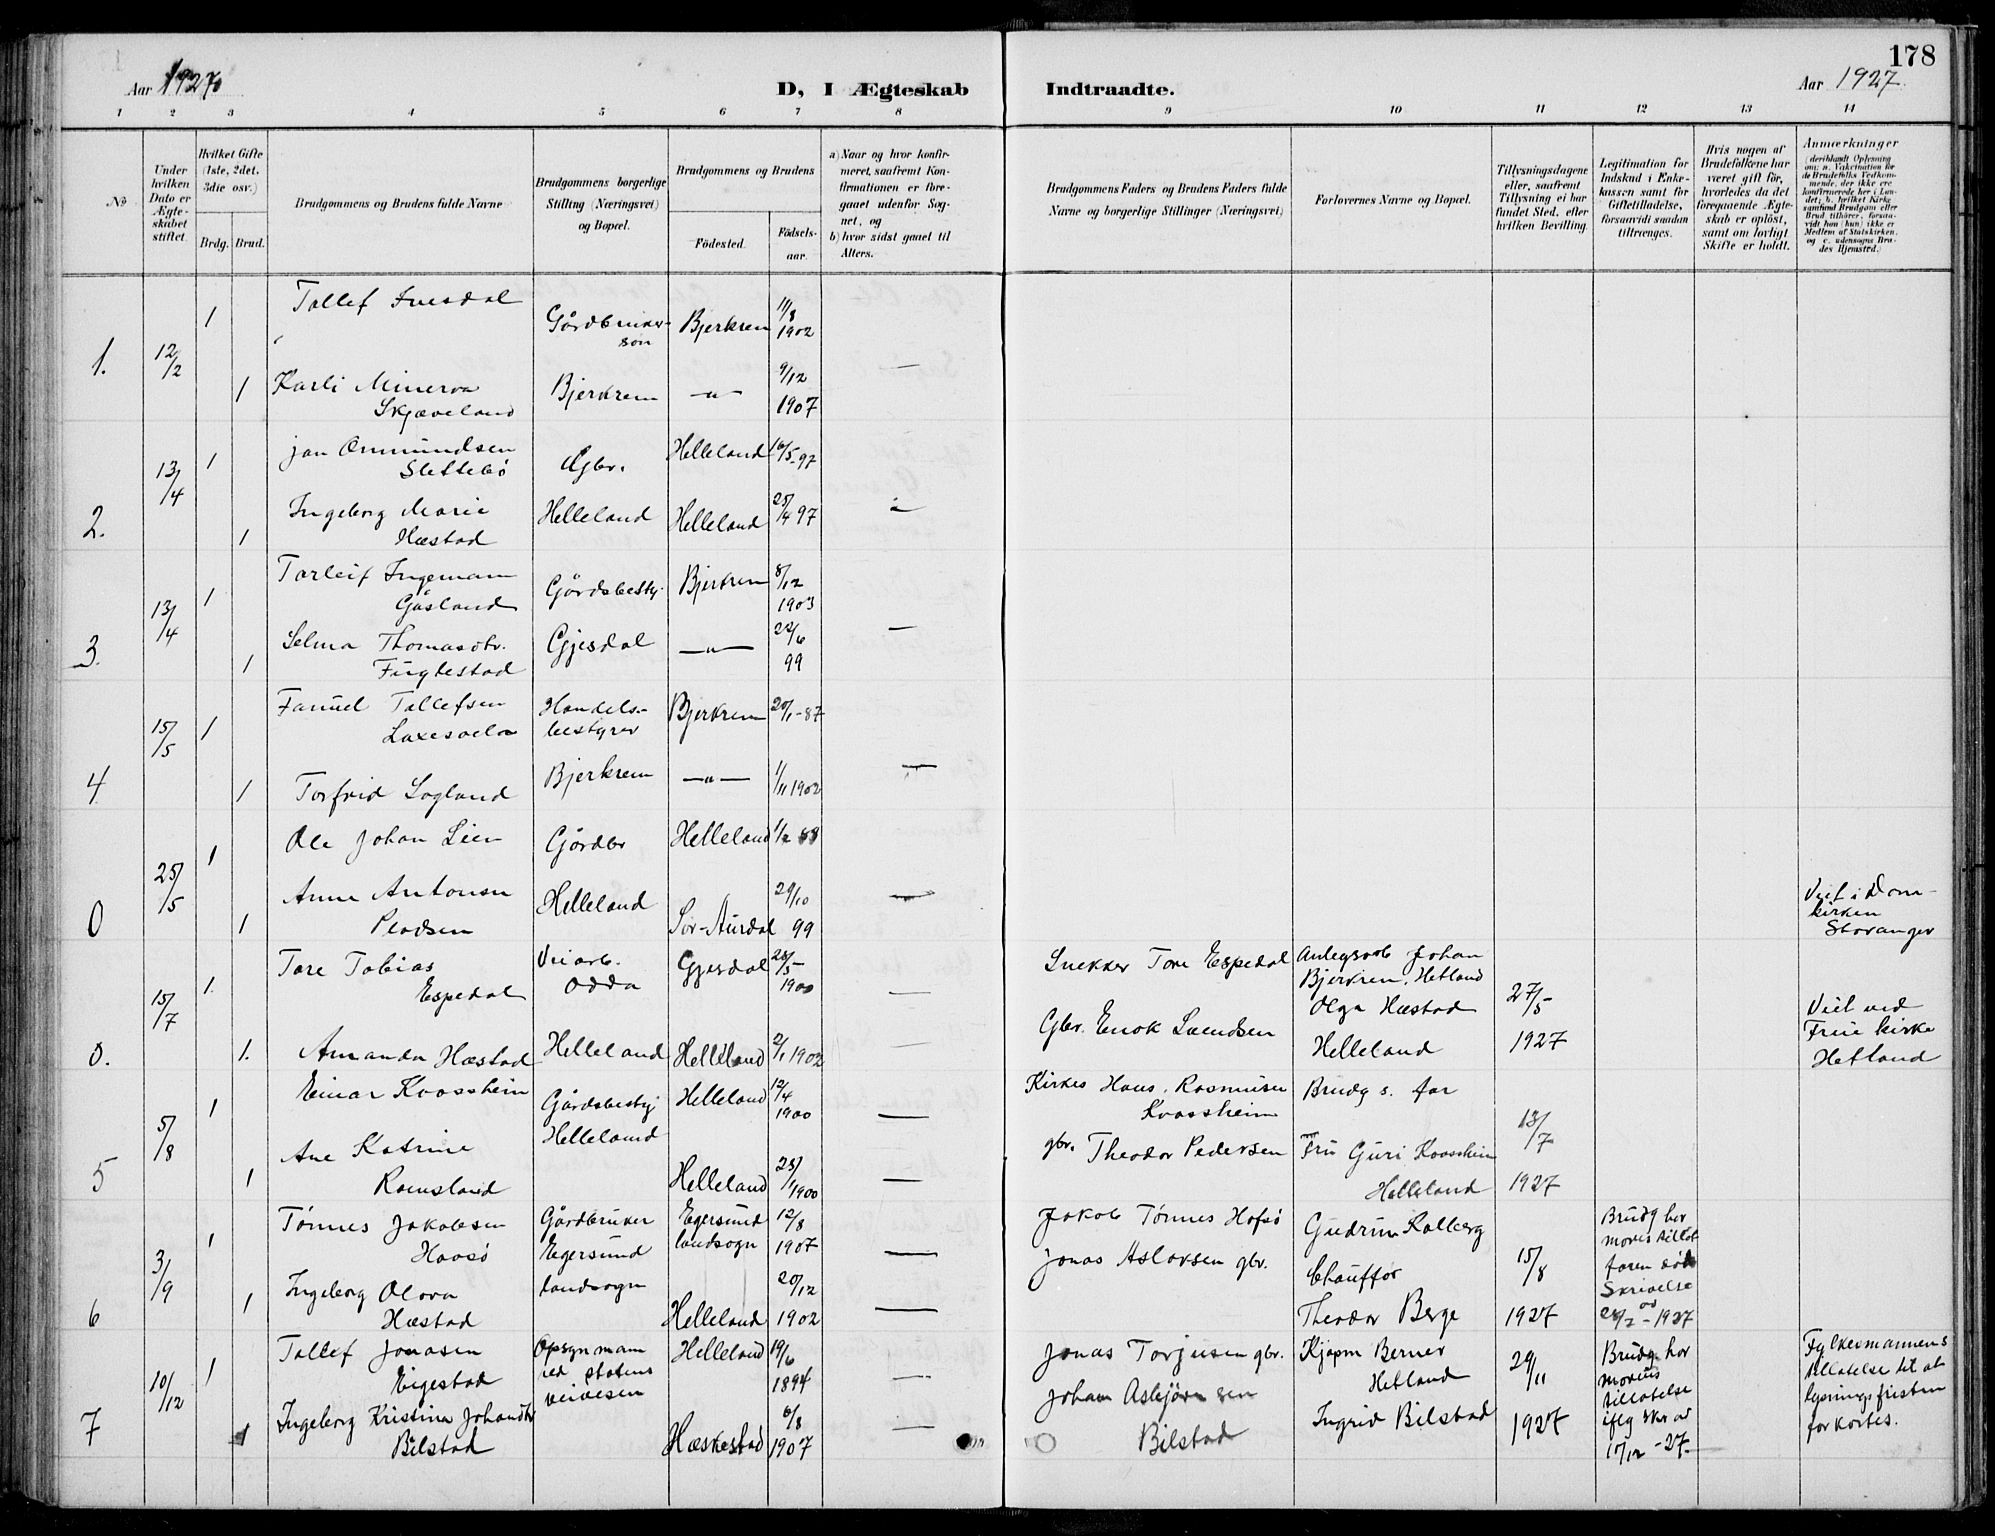 178
Aar 1927
D, I Ægteskab Indtraadte.
Aar 1927.
1 2 3 4 5 6 7 8 9 10 11 12 13 14
No
Under hvilken Dato er Ægteskabet stiftet.
Hvilket Gifte (1ste, 2det, 3die osv.)
Brdg. Brud.
Brudgommens og Brudens fulde Navne
Brudgommens borgerlige Stilling (Næringsvei) og Bopæl.
Brudgommens og Brudens
Födested.
Födselsaar.
a) Naar og hvor konfirmeret, saafremt Konfirmationen er foregaaet udenfor Sognet, og
b) hvor sidst gaaet til Alters.
Brudgommens Faders og Brudens Faders fulde Navne og borgerlige Stillinger (Næringsvei)
Forlovernes Navne og Bopæl.
Tillysningsdagene eller, saafremt Tillysning ei har fundet Sted, efter hvilken Bevilling.
Legitimation for Indskud i Enkekassen samt for Giftetilladelse, forsaavidt saadan tiltrænges.
Hvis nogen af Brudefolkene har været gift för, hvorledes da det foregaaende Ægteskab er oplöst, samt om lovligt Skifte er holdt.
Anmærkninger
(deriblandt Oplysning om: a. Vakcination for de Brudefolks Vedkommende, der ikke ere konfirmerede her i Landet; b. hvilket Kirkesamfund Brudgom eller Brud tilhörer, forsaavidt han (hun) ikke er Medlem af Statskirken, og c. udensogns Brudes Hjemsted.)
1. 12/2 1 Tollef Ivesdal Gårdbrukersön Bjerkrem 11/8 1902
1 Karli Minerva Skjæveland Bjerkrem —"— 9/12 1907 —
2. 13/4 1 Jan Ommundsen Slettebö Gbr. Helleland 16/5-97
1 Ingeborg Marie Hæstad Helleland Helleland 25/4 97
3. 13/4 1 Torleif Ingemann Gåsland Gårdsbesty. Bjerkrem 8/12 1903
1 Selma Thomasdtr. Fuglestad Gjesdal —"— 22/6 99 —
4. 15/5 1 Fanuel Tollefsen Laxesvela Handelsbestyrer Bjerkrem 20/1-87
1 Torfrid Sagland Bjerkrem —"— 1/11 1902 —
0 25/5 1 Ole Johan Lien Gårdbr Helleland 1/2 88
1 Anne Antonsen Helleland Sör-Aurdal 29/10 99 —
Viet i Domkirken Stavanger
0. 15/7 1. Tore Tobias Espedal Veiarb. Odda Gjesdal 28/5- 1900 —
Snekker Tore Espedal
Anlegsarb Johan Bjerkrem, Hetland
1. Amanda Hæstad Helleland Helleland 2/1 1902 —
Gbr. Enok Svendsen
Olga Hæstad Helleland
27/5- 1927
Viet ved Frue kirke Hetland
5 5/8 1 Einar Kvassheim Gårdsbesty Helleland Helleland 12/4 1900 —
Kirkes Hans. Rasmusen Kvassheim
Brudg s. far
1 Ane Katrine Ramsland Helleland 25/1 1900 —
gbr. Theodor Pedersen
Fru Guri Kvassheim Helleland
13/7 1927
6 3/9 1 Tönnes Jakobsen Havsö Gårdbruker Egersund landsogn Egersund landsogn 12/8 1907 —
Jakob Tönnes Hafsö
Gudrun Kalberg
1 Ingeborg Olava Hæstad Helleland 20/12 1902 —
Jonas Aslaksen gbr.
Chaufför Theodor Berge
15/8 1927
Brudg har mors tillat faren död Skrivelse av 28/2-1927
7 10/12 1 Tollef Jonasen Eigestad Opsynmann ved statens veivesen Helleland 19/6 1894 —
Jonas Torjusen gbr.
Kjöpm Berner Hetland
1 Ingeborg Kristina Johandtr Bilstad Hæskestad 6/8 1907 —
Johan Asbjörnsen Bilstad
Ingrid Bilstad
29/11 1927
Brudg. har morens tillatelse iflg skr av 10/12-27.
Fylkesmannens tillatelse til at lysningsfristen forkortes.